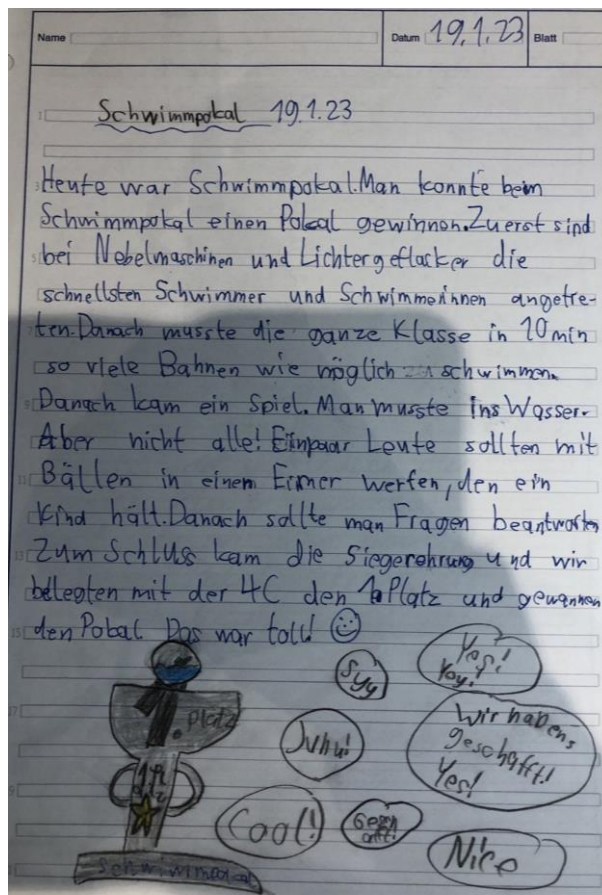 Name
Datum 19.1.23
Blatt
Schwimmpokal 19.1.23
Heute war Schwimmpokal. Man konnte beim
Schwimmpokal einen Pokal gewinnen. Zuerst sind
bei Nebelmaschinen und Lichtergeflacker die
schnellsten Schwimmer und Schwimmerinnen angetre-
ten. Danach musste die ganze Klasse in 10 min
so viele Bahnen wie möglich schwimmen.
Danach kam ein Spiel. Man musste ins Wasser.
Aber nicht alle! Einpaar Leute sollten mit
Bällen in einem Eimer werfen, den ein
Kind hält. Danach sollte man Fragen beantworten
Zum Schluss kam die Siegerehrung und wir
belegten mit der 4C den 1. Platz und gewannen
den Pokal Das war toll!
Syy
Yes!
Yay!
1. Platz
Juhu!
Wir habens
geschafft!
Yes!
Cool!
Nice
Schwimmpokal